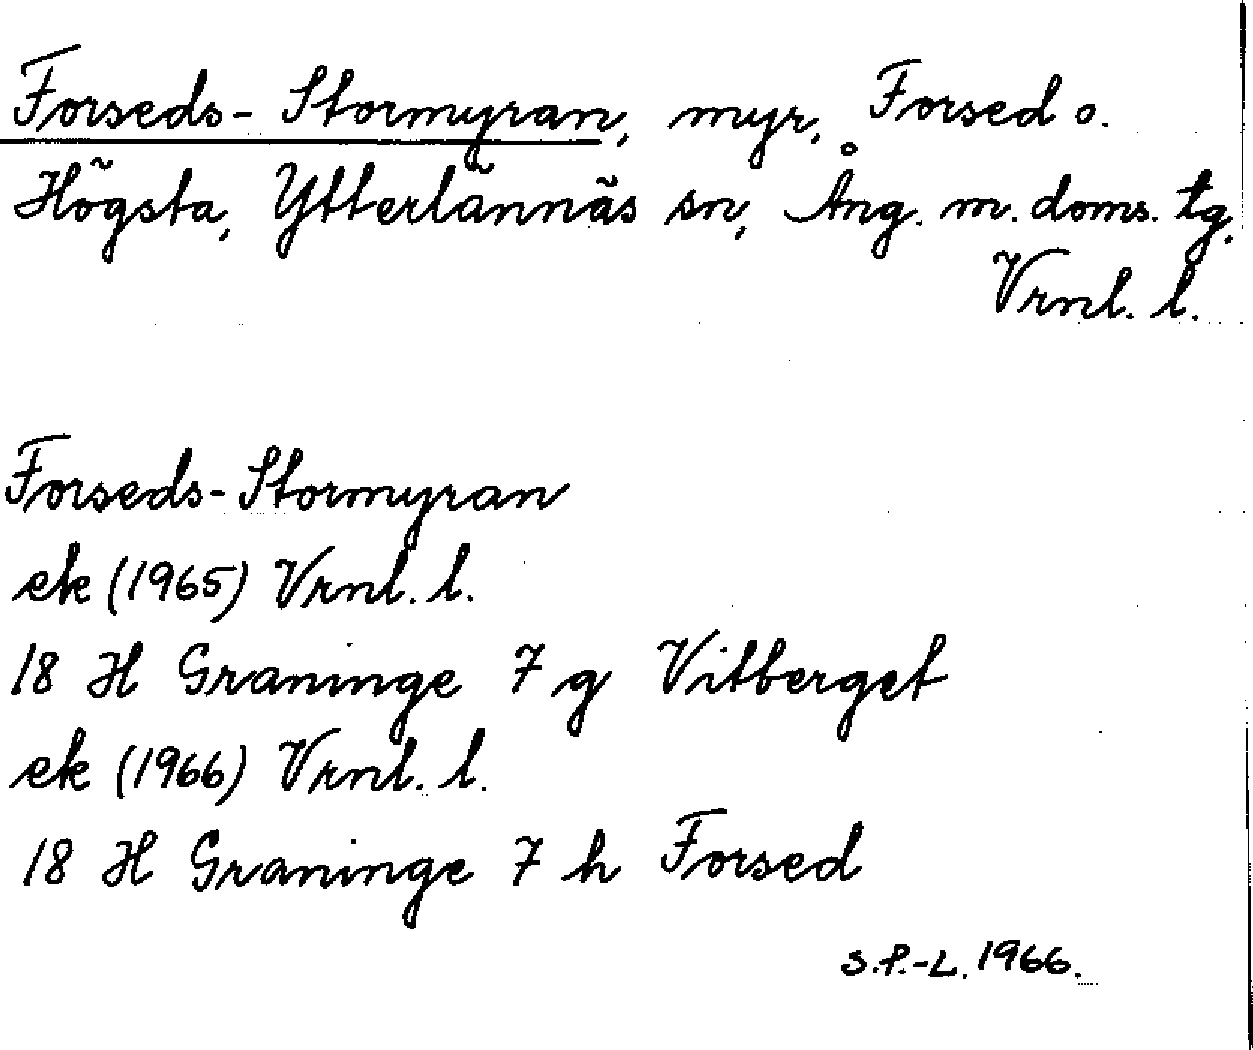 Forseds-Stormyran, myr, Forsed o.
Högsta, Ytterlännäs sn, Ång. m. doms. tg.
Vrnl. l.
Forseds-Stormyran
ek (1965) Vrnl. l.
18 H Graninge 7 g Vitberget
ek (1966) Vrnl. l.
18 H Graninge 7 h Forsed
S.P.-L. 1966.